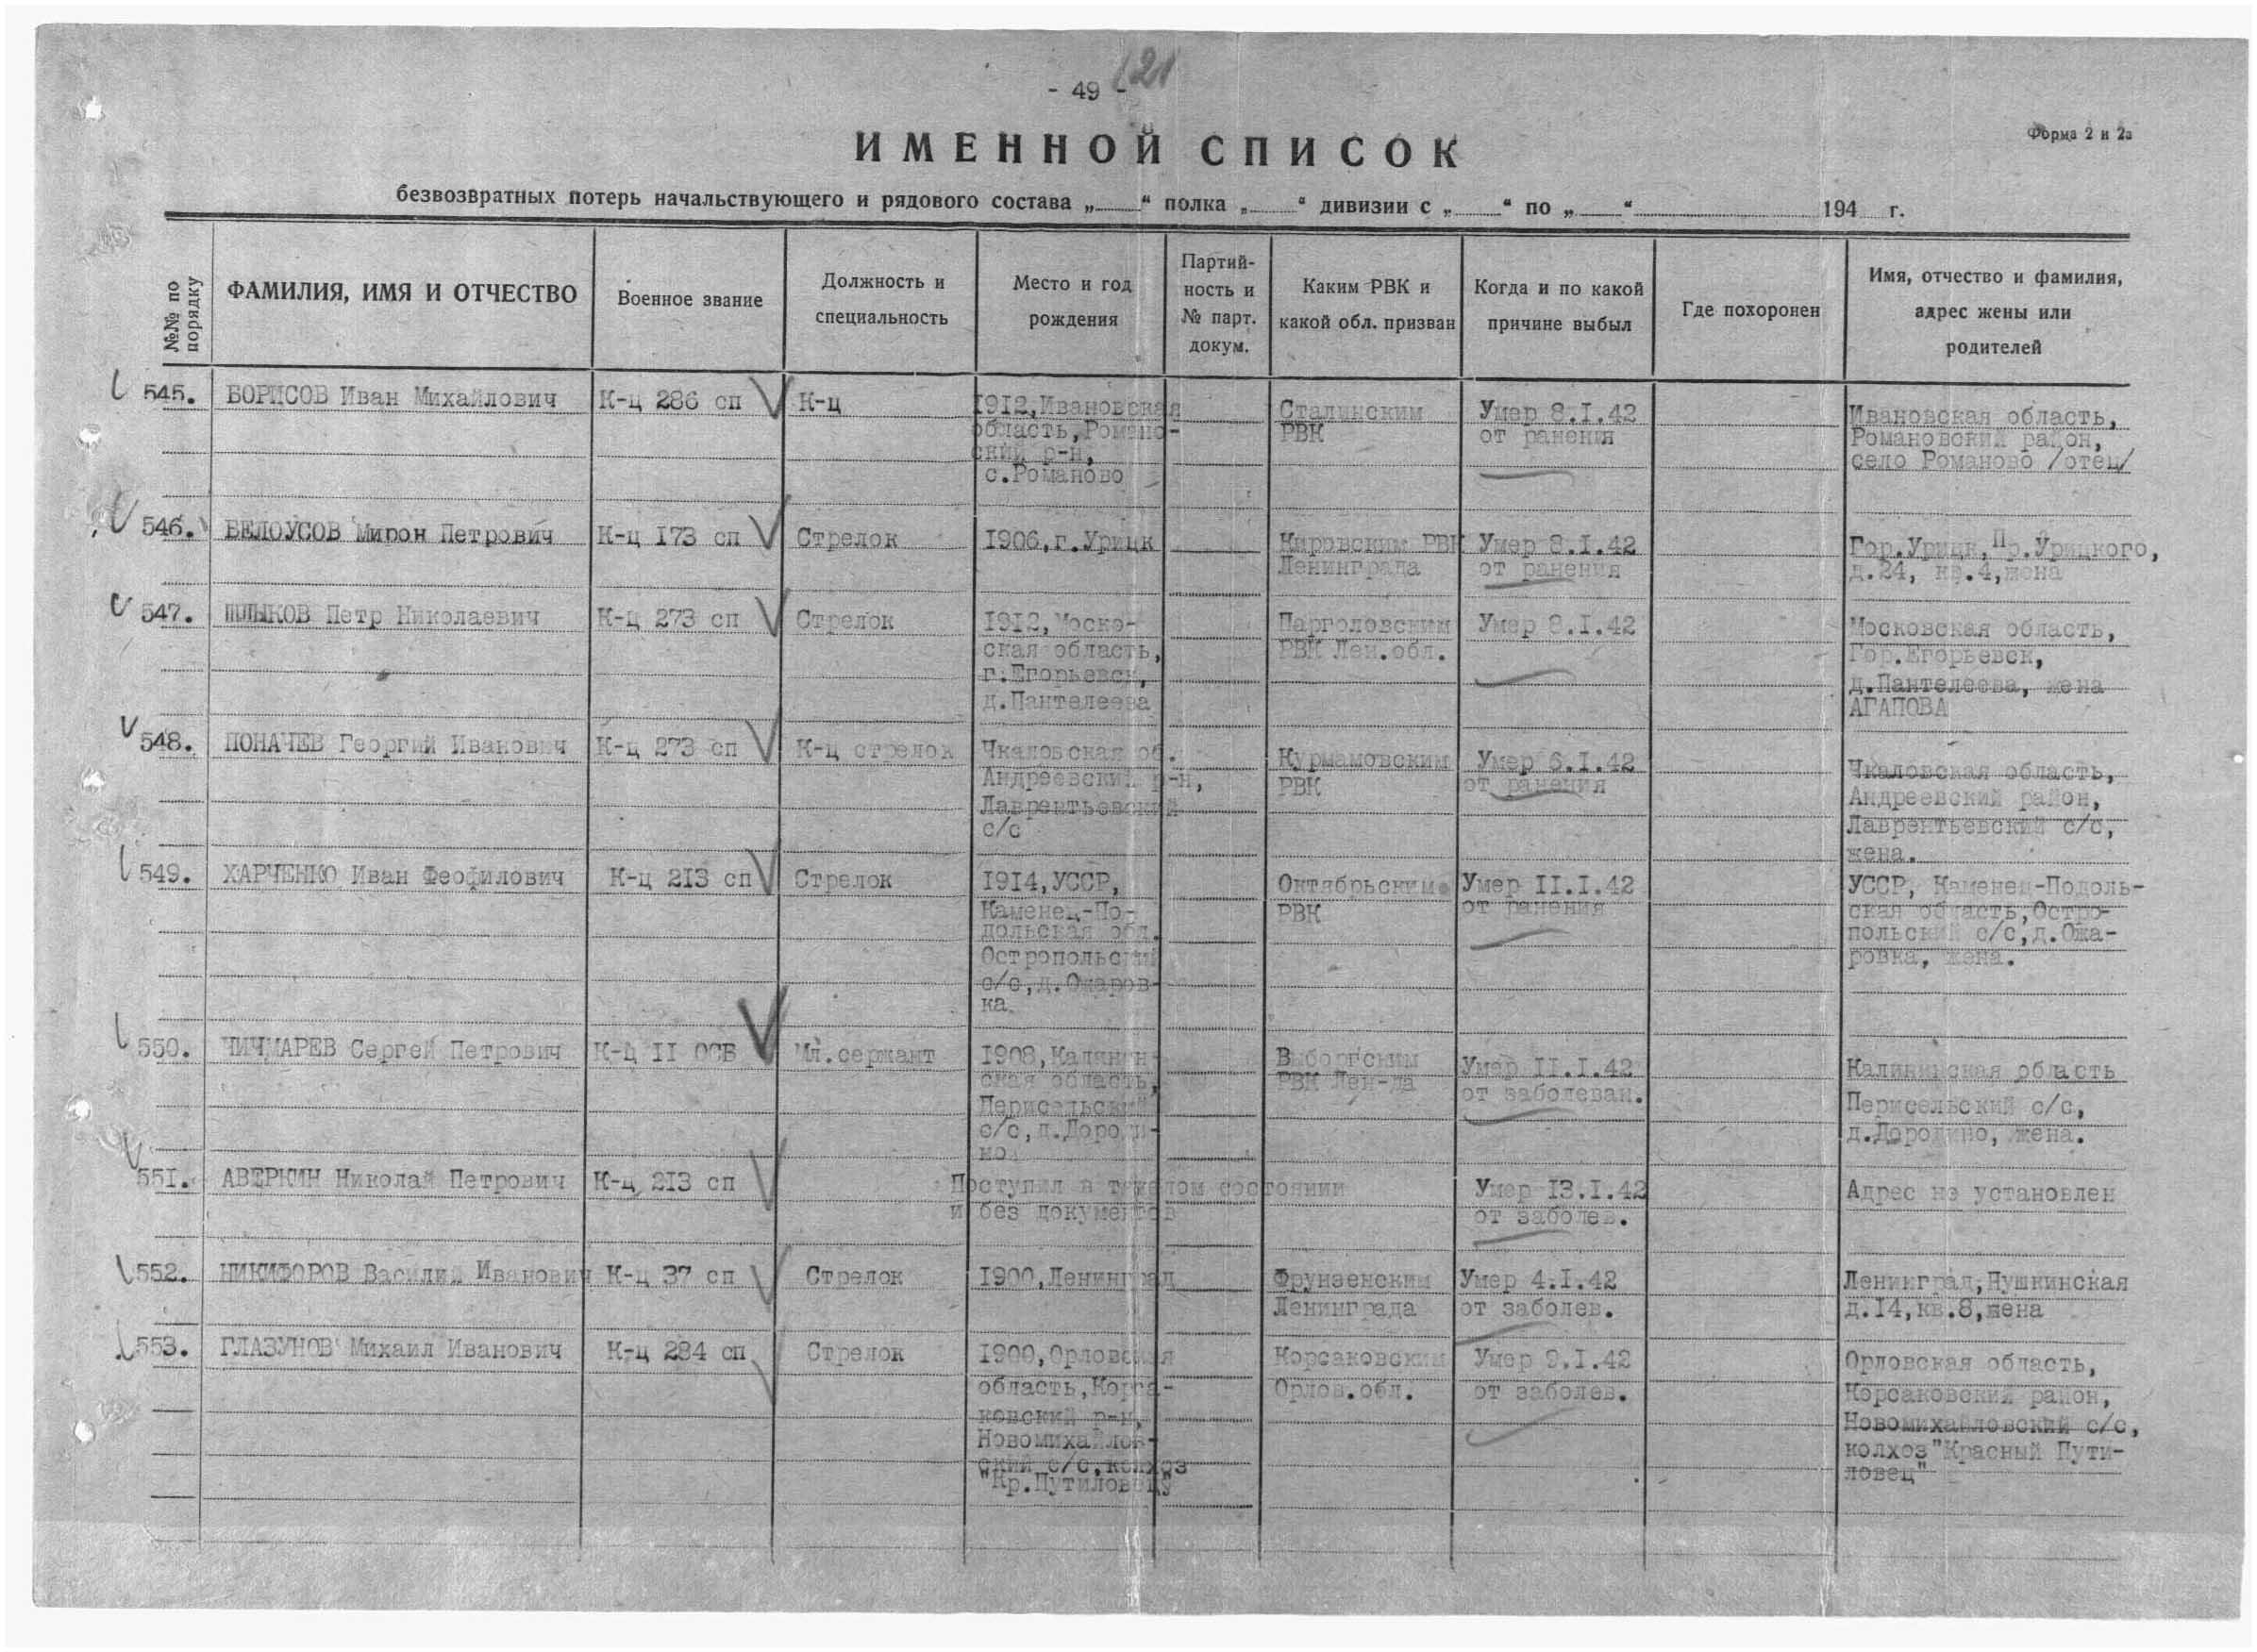 - 49 -
121
Форма 2 и 2а
ИМЕННОЙ СПИСОК
безвозвратных потерь начальствующего и рядового состава „ “ полка „ “ дивизии с „ “ по „ “ 194 г.
№№ по порядку
ФАМИЛИЯ, ИМЯ И ОТЧЕСТВО
Военное звание
Должность и
специальность
Место и год
рождения
Партий-
ность и
№ парт.
докум.
Каким РВК и
какой обл. призван
Когда и по какой
причине выбыл
Где похоронен
Имя, отчество и фамилия,
адрес жены или
родителей
545. БОРИСОВ Иван Михайлович К-ц 286 сп К-ц
1912,Ивановская
область,Романо-
ский р-н,
с.Романово
Сталинским
РВК
Умер 8.I.42
от ранения
Ивановская область,
Романовский район,
село Романово /отец/
546. БЕЛОУСОВ Мирон Петрович К-ц 173 сп Стрелок
1906,г.Урицк
Кировским РВК
Ленинграда
Умер 8.I.42
от ранения
Гор.Урицк,Пр.Урицкого,
д.24, кв.4,жена
547. ШЛЫКОВ Петр Николаевич К-ц 273 сп Стрелок
1912,Моско-
ская область,
г.Егорьевск,
д.Пантелеева
Парголовским
РВК Лен.обл.
Умер 8.I.42
Московская область,
Гор.Егорьевск,
д.Пантелеева, жена
АГАПОВА
548. ПОНАЧЕВ Георгий Иванович К-ц 273 сп К-ц стрелок
Чкаловская об.
Андреевский р-н,
Лаврентьевский
с/с
Курмамовским
РВК
Умер 6.I.42
от ранения
Чкаловская область,
Андреевский район,
Лаврентьевский с/с,
жена.
549. ХАРЧЕНКО Иван Феофилович К-ц 213 сп Стрелок
1914,УССР,
Каменец-По-
дольская обл.
Остропольский
с/с,д.Ожаров-
ка
Октябрьским
РВК
Умер II.I.42
от ранения
УССР, Каменец-Подоль-
ская область,Остро-
польский с/с,д.Ожа-
ровка, жена.
550. ЧИЧМАРЕВ Сергей Петрович К-ц II ОСБ Мл.сержант
1908,Калинин-
ская область,
Перисельский
с/с,д.Дороди-
но
Выборгским
РВК Лен-да
Умер II.I.42
от заболеван.
Калининская область
Перисельский с/с,
д.Дородино, жена.
551. АВЕРКИН Николай Петрович К-ц 213 сп
Поступил в тяжелом состоянии
и без документов
Умер 13.I.42
от заболев.
Адрес не установлен
552. НИКИФОРОВ Василий Иванович К-ц 37 сп Стрелок
1900,Ленинград
Фрунзенским
Ленинграда
Умер 4.I.42
от заболев.
Ленинград,Пушкинская
д.14,кв.8,жена
553. ГЛАЗУНОВ Михаил Иванович К-ц 284 сп Стрелок
1900,Орловская
область,Корса-
ковский р-н,
Новомихайлов-
ский с/с,колхоз
"Кр.Путиловец"
Корсаковским
Орлов.обл.
Умер 9.I.42
от заболев.
Орловская область,
Корсаковский район,
Новомихайловский с/с,
колхоз"Красный Пути-
ловец"